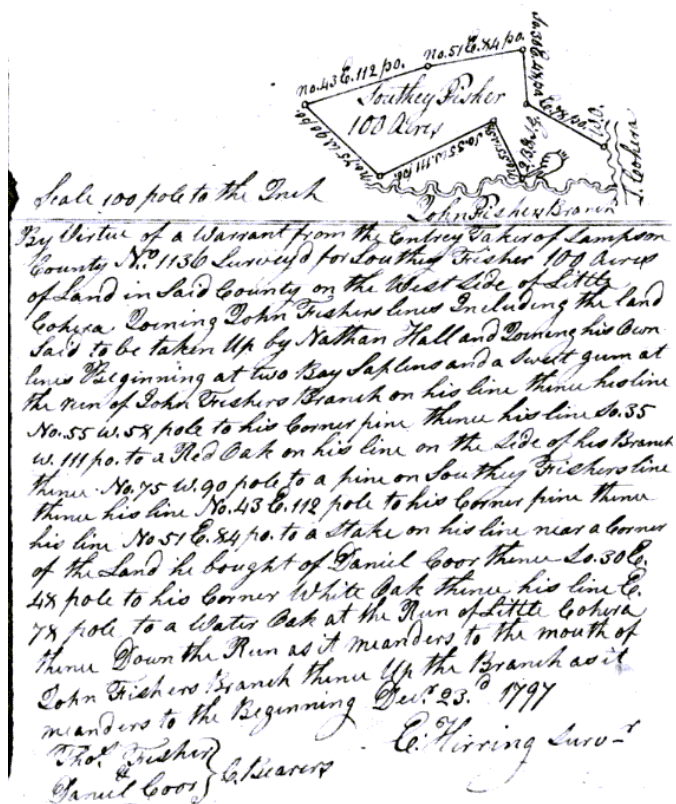 No. 43 E. 112 po.
No. 51 E. 84 po.
Southey Fisher
100 Acres
No. 75 W. 90 po.
So. 35 W. 111 po.
W.O.
L. Cohera
Scale 100 pole to the Inch
John Fishers Branch
By Virtue of a Warrant from the Entrey Taker of Sampson
County No. 1136 Survey'd for Southey Fisher 100 Acres
of Land in Said County on the West Side of Little
Cohera Joining John Fishers lines Including the land
Said to be taken Up by Nathan Hall and Joining his Own
lines Beginning at two Bay Saplens and a Sweet gum at
the run of John Fishers Branch on his line thence his line
No. 55 W. 58 pole to his Corner pine thence his line So. 35
W. 111 po. to a Red Oak on his line on the Side of his Branch
thence No. 75 W. 90 pole to a pine on Southey Fishers line
thence his line No. 43 E. 112 pole to his Corner pine thence
his line No 51 E. 84 po. to a Stake on his line near a Corner
of the Land he bought of Daniel Coor thence So. 30 E.
48 pole to his Corner White Oak thence his line E.
78 pole to a Water Oak at the Run of Little Cohera
thence Down the Run as it meanders to the mouth of
John Fishers Branch thence Up the Branch as it
meanders to the Beginning Decr. 23.d 1797
Thos. Fisher
Daniel Coor } C. Bearers
E. Herring Survr